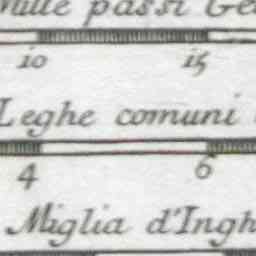 Mille passi Ge
10 15
Leghe comuni
4 6
Miglia d'Ingh